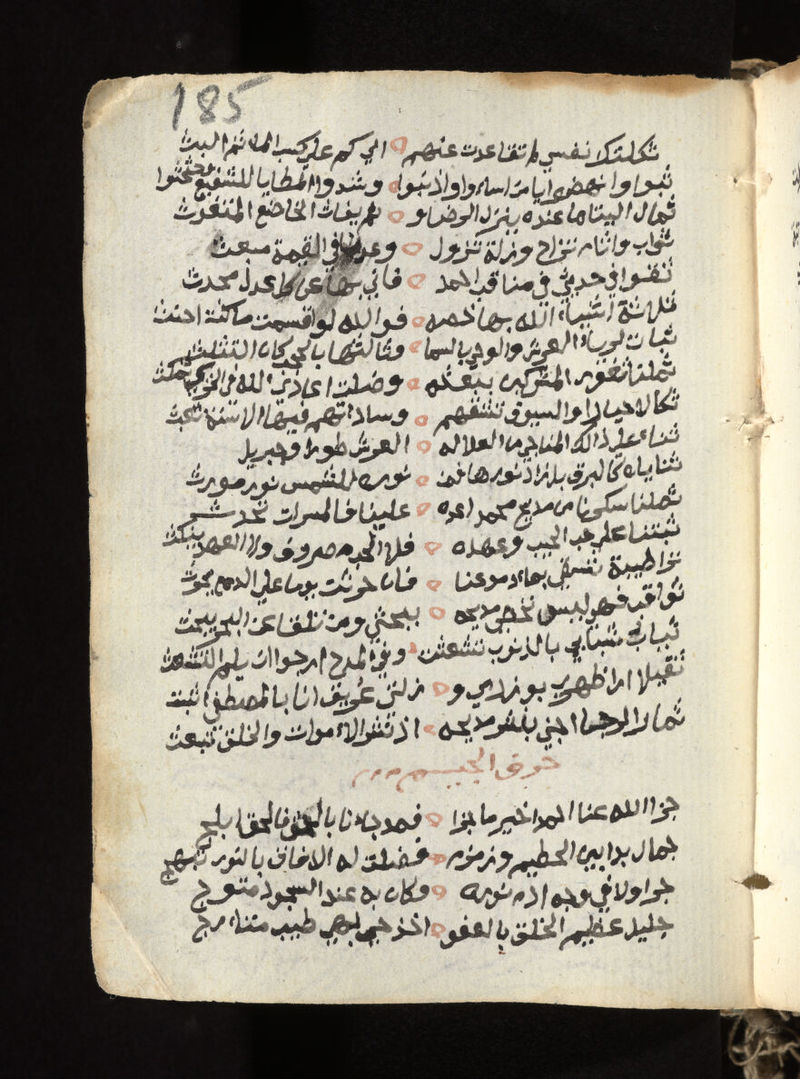 185
ثكلتك نفسي لم تقاعدت عنهم الي كم علي كسب الماثم البث
ثبوا وانهضوا يا من اساءوا واذنبوا وشدوا المطايا للشفيع
ثمال اليتاما عنده ينزل الرضا و يغاث الخاضع المتغوث
ثواب واثام تزاح وزلة تزول و في القيمة مبعث
ثقوا في حديثي في مناقب احمد فاني بها عن كل عدل محدث
ثلاثة اشياء الله بها خصه فوالله لو اقسمت ما كنت احنث
ثبات لوياء العرش والوحي بالسما وثالثها بالحجب كان التثلث
ثملنا ثغور المشركين ببعثه وضلت اعادي الله في
ثكالا حيارا والسيوف تنشهم وساداتهم فيها الاسنة تعبث
ثناء علي ذالك المناجي من العلا اله العرش طورا وجبريل
ثناياه كالبرق بل زاد نورها نوره للشمس نور مورث
ثملنا سكونا من مديح محمد علينا فالمسرات تحدث
ثبتنا علي حب الحبيب وعهده فلا الحب مصروف ولا العهد ينكث
ثرا طيبة نسقي بماء دموعنا فان حرثت يوما علي الدمع تحرث
ثواقب فهم ليس تحصي مديحه ببحثي ومن تلقا عن البحر يبحث
ثياب شبابي بالذنوب تشعثت وفي المدح ارجوا ان يلم التشعث
ثقيلا ارا ظهري بوزري و زلتي غريق انا بالمصطفي اتثبت
ثمار الرضا اجني بنشر مديحه اذ تنشر الاموات والخلق تبعث
حرف الجيم
جزا الله عنا احمدا خير ما جزا فمد جاءنا بالحق فالحق ابلج
جمال بدا بين الحطيم وزمزم فضلت له الافاق بالنور تبهج
جرا ولا في وجه ادم نوره وكان به عند السجود متوج
جليل عظيم الخلق بالعفو اخذ طيب متارج